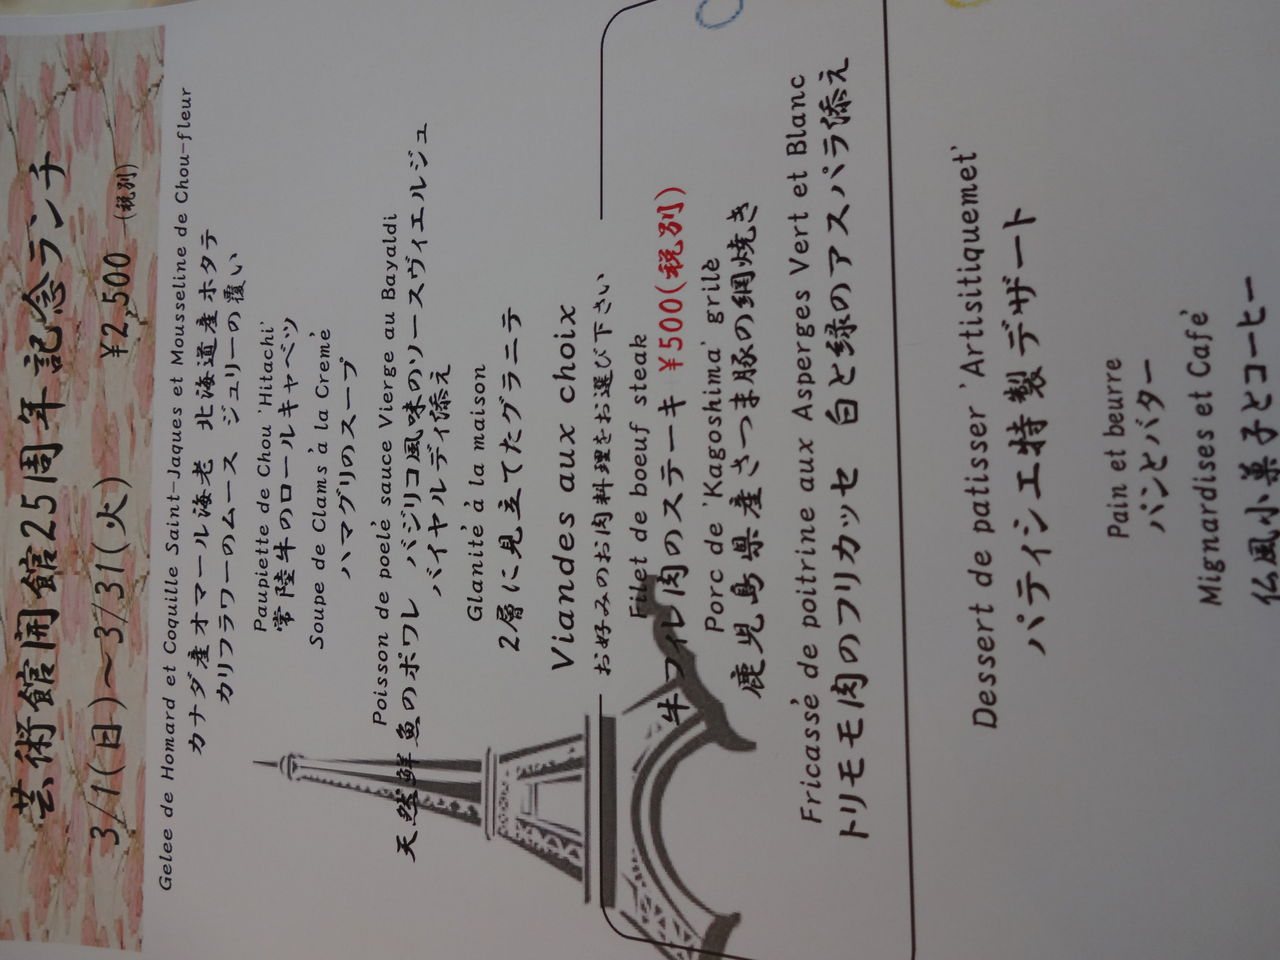 芸術館開館25周年記念ランチ
3/1(日)～3/31(火) ¥2,500 (税別)
Gelee de Homard et Coquille Saint-Jaques et Mousseline de Chou-fleur
カナダ産オマール海老 北海道産ホタテ
カリフラワーのムース ジュリーの覆い
Paupiette de Chou 'Hitachi'
常陸牛のロールキャベツ
Soupe de Clams à la Cremé
ハマグリのスープ
Poisson de poelé sauce Vierge au Bayaldi
天然鮮魚のポワレ バジリコ風味のソースヴィエルジュ
バイヤルディ添え
Glanité à la maison
2層に見立てたグラニテ
Viandes aux choix
お好みのお肉料理をお選び下さい
Filet de boeuf steak
牛フィレ肉のステーキ ¥500(税別)
Porc de 'Kagoshima' grilè
鹿児島県産さつま豚の網焼き
Fricassé de poitrine aux Asperges Vert et Blanc
トリモモ肉のフリカッセ 白と緑のアスパラ添え
Dessert de patisser 'Artisitiquemet'
パティシエ特製デザート
Pain et beurre
パンとバター
Mignardises et Cafè
仏風小菓子とコーヒー